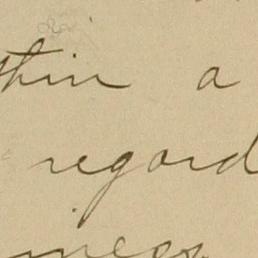 thin a
regard
iness